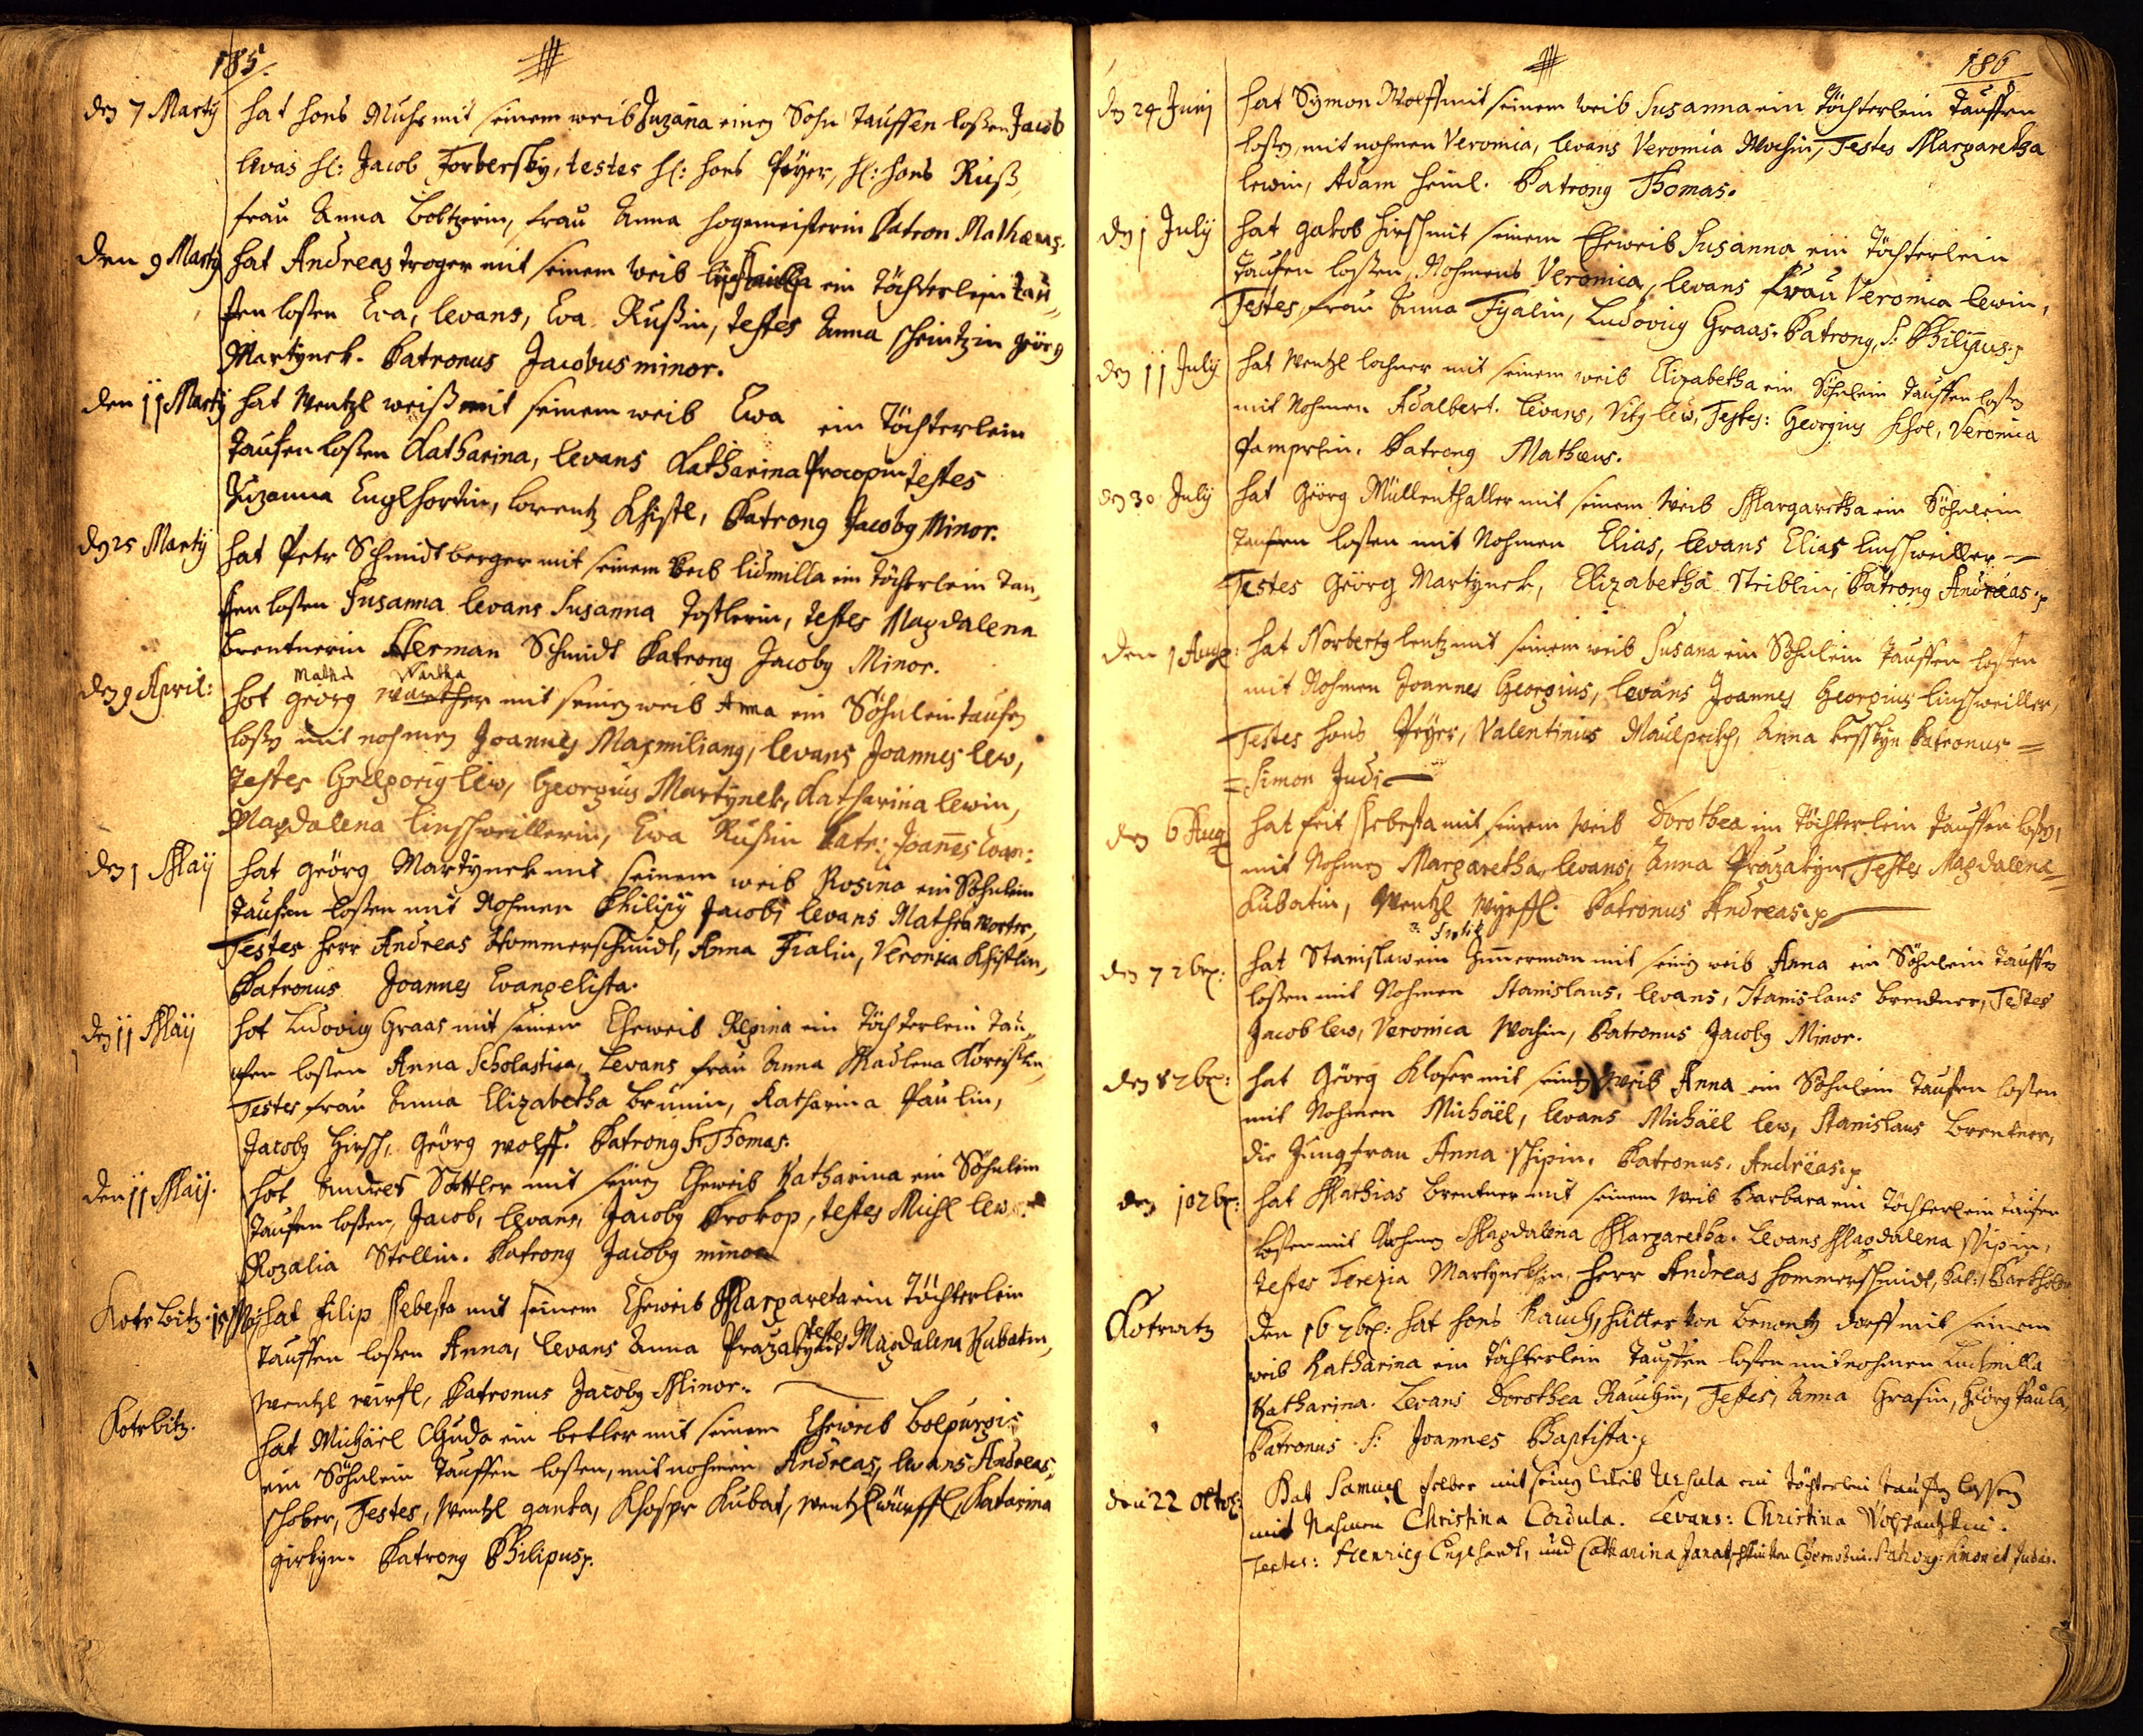 185.
den 7 Martij hat hans Muhr mit seinem weib Zuzana einen Sohn tauffen loßen Jacob
levas H: Jacob Forbersky, testes H: hans Peyer, H: hans Ruß,
frau Anna Boltzerin, frau Anna hogemeisterin Patron Mathaeus.
den 9 Martij hat Andreas troger mit seinem weib ein töchterlein tau,,
ffen loßen Eva, levans, Eva Rußin, testes Anna Georg
Martÿnek. Patronus Jacobus minor.
den 11 Martij hat Wentzl weiß mit seinem weib Ewa ein töchterlein
tauffen loßen Katharina, levans Katharina Procopin testes
Zuzanna Englhortin, Lorentz Khistl, Patronq Jacobq Minor.
den 25 Martij hat Petr Schmidtberger mit seinem weib lidmilla ein töchterlein Tau,,
ffen loßen Susanna levans Susanna testes Magdalena
Brentnerin Herman Schmidt Patronq Jacobq Minor.
Mathes Wartha
den 9 April: hot Georg warther mit seinen weib Anna ein Söhnlein taufen
loßen mit nohmen Joannes Maxmilianq, levans Joannes lew,
Testes Gregoriq lew, Georgius Martÿnek, Katharina lewin,
Magdalena linßweillerin, Ewa Rußin Patr: Joanes Evan:
den 1 Maij hat Georg Martÿnek mit seinem weib Rosina ein Söhnlein
Tauffen loßen mit Nohmen Philipq Jacobq levans Mathes worter,
Testes herr Andreas Hommerschmidt, Anna Fialin, Veronica Khistlin,
Patronus Joannes Evangelista.
den 11 Maij hot Ludoviq Graas mit seinem Eheweib Regina ein Töchterlein Tau,,
ffen loßen Anna Scholastica, Levans frau Anna Madlena
Testes frau Anna Elizabetha Brunin, Katharina Paulin,
Jacobq Hirsch, Georg wolff. Patronq S: Thomas.
den 11 Maij. hot Andres Sottler mit seinen Eheweib Katharina ein Söhnlein
tauffen loßen, Jacob, levans, Jacobq Prokop, testes Michl lew
Rozalia Stellin. Patronq Jacobq minor
Kotrbitz. 15 Maj hat Filip Sebesta mit seinem Eheweib Margareta ein Töchterlein
tauffen loßen Anna, levans Anna Prazakyn testes Magdalena Kubatin,
Wentzl wirfl, Patronus Jacobq Minor.
Kotrbitz. hat Michäel Chuda ein betler mit seinem Eheweib
ein Söhnlein tauffen loßen, mit nohmen Andreas, levans Andreas
schober, Testes, Wentzl ganka, Khaspr Kubat, Wentzl würffl, Katarina
Patronq Philipus.
186
den 24 Junj hat Symon Wolff mit seinem weib Susanna ein töchterlein tauffen
loßen, mit nohmen Veronica, levans Veronica Wochin, Testes Margaretha
lewin, Adam heinl. Patronq Thomas.
den 1 Julij hat Jakob Hirsch mit seinem Eheweib Susanna ein töchterlein
taufen loßen, Nohmens Veronica, levans frau Veronica lewin,
Testes, frau Anna Fyalin, Ludoviq Graas. Patronq, S: Philippus.
den 11 Julij hat Wentzl lochner mit seinem weib Elizabetha ein Söhnlein tauffen loßen
mit Nohmen Adalbert. levans, Vitq lew, Testes: Georgius Veronica
Patronq Mathaeus.
den 30 Julij hat Georg Müllenthaller mit seinem weib Margaretha ein Söhnlein
tauffen loßen mit Nohmen Elias, levans Elias linßweiller
Testes Georg Martÿnek, Elizabetha Patronq Andreas.
den 1 Aug: hat Norbertq lentz mit seinem weib Susana ein Söhnlein tauffen loßen
mit Nohmen Joannes Georgius, levans Joannes Georgius linßweiller,
Testes hans Peyer, Valentinius Anna Patronus =
= Simon Juda
den 6 Aug hat feit Sebesta mit seinem weib Dorothea ein töchterlein tauffen loßen,
mit Nohmen Margaretha, levans, Anna Prazakyn, Testes Magdalena
Kubatin, Wentzl Wyrffl. Patronus Andreas.
den 7 7br: hat Stanislaw ein Zimmerman mit seinen weib Anna ein Söhnlein tauffen
loßen mit Nohmen Stanislaus, levans, Stanislaus Brentner, Testes
Jacob lew, Veronica Wochin, Patronus Jacobq Minor.
den 8 7br: hat Georg Kloser mit seinen weib Anna ein Söhnlein tauffen loßen
mit Nohmen Michäel, levans Michäel lew, Stanislaus Brentner,
die Jungfrau Anna Patronus. Andreas.
den 10 7br: hat Mathias Brentner mit seinem weib Barbara ein Töchterlein taufen
loßen mit Nohmen Magdalena Margaretha. Levans Magdalena
testes Terezia Martynekin, herr Andreas Hommerschmidt,
Kotrwitz den 16 7br: hat hans Rauch, hütter von dorff mit seinem
weib Katharina ein Töchterlein Tauffen loßen mit nohmen Ludmilla
Katharina. Levans Dorothea Rauchin, Testes, Anna Grasin, Georg Paula,
Patronus S: Joannes Baptista.
den 22 Octob: Hat Samuel felber mit seinem Weib Ursula ein töchterlein tauffen lassen
mit Nahmen Christina Cordula. Levans: Christina
Testes: Henricq Englhardt, und Catharina Patronq: Simon et Judas.